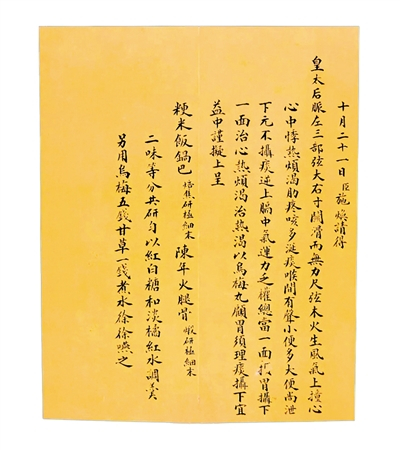 十月二十一日臣施煥請得
皇太后脈左三部弦大右寸關滑而無力尺弦木火生風氣上撞心
心中悸熱煩渴肋疼咳多涎痰喉間有聲小便多大便尚泄
下元不攝痰逆上膈中氣運力乏權總當一面振胃攝下
一面治心熱煩渴治熱渴以烏梅丸顧胃須理痰攝下宜
益中謹擬上呈
粳米飯鍋巴焙焦研極細末 陳年火腿骨煅研極細末
二味等分共研勻以紅白糖和淡橘紅水調羹
另用烏梅五錢甘草一錢煮水徐徐嚥之